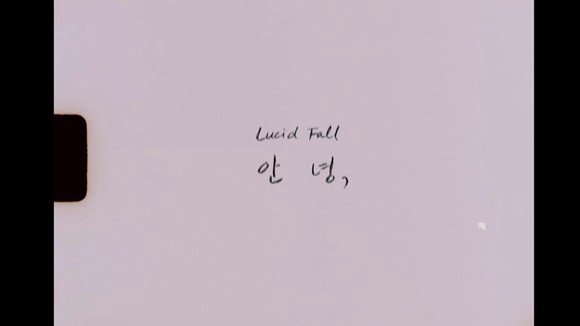 Lucid Fall
안 녕,